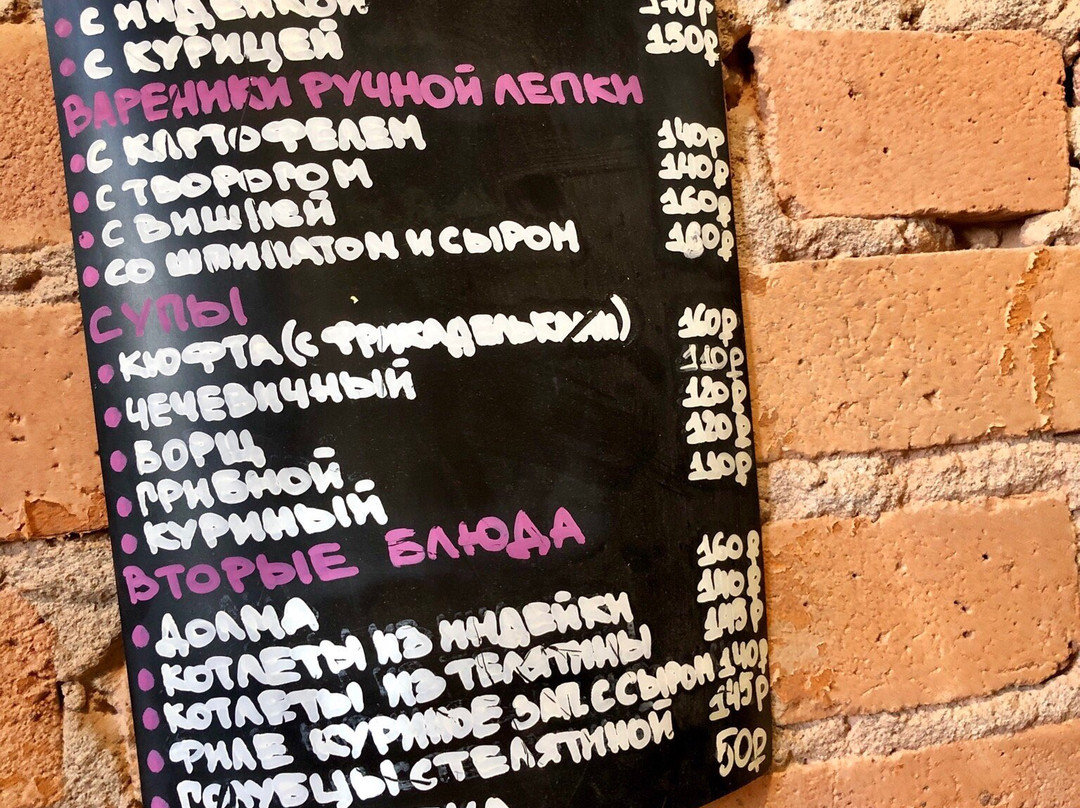 С ИНДЕЙКОЙ
С КУРИЦЕЙ 150₽
ВАРЕНИКИ РУЧНОЙ ЛЕПКИ
С КАРТОФЕЛЕМ 140₽
С ТВОРОГОМ 140₽
С ВИШНЕЙ 160₽
СО ШПИНАТОМ И СЫРОМ 160₽
СУПЫ
КЮФТА (С ФРИКАДЕЛЬКАМИ) 160₽
ЧЕЧЕВИЧНЫЙ 110₽
БОРЩ 120₽
ГРИБНОЙ 120₽
КУРИНЫЙ 110₽
ВТОРЫЕ БЛЮДА
ДОЛМА 160₽
КОТЛЕТЫ ИЗ ИНДЕЙКИ 140₽
КОТЛЕТЫ ИЗ ТЕЛЯТИНЫ 145₽
ФИЛЕ КУРИНОЕ ЗАП. С СЫРОМ 140₽
ГОЛУБЦЫ С ТЕЛЯТИНОЙ 145₽
50₽